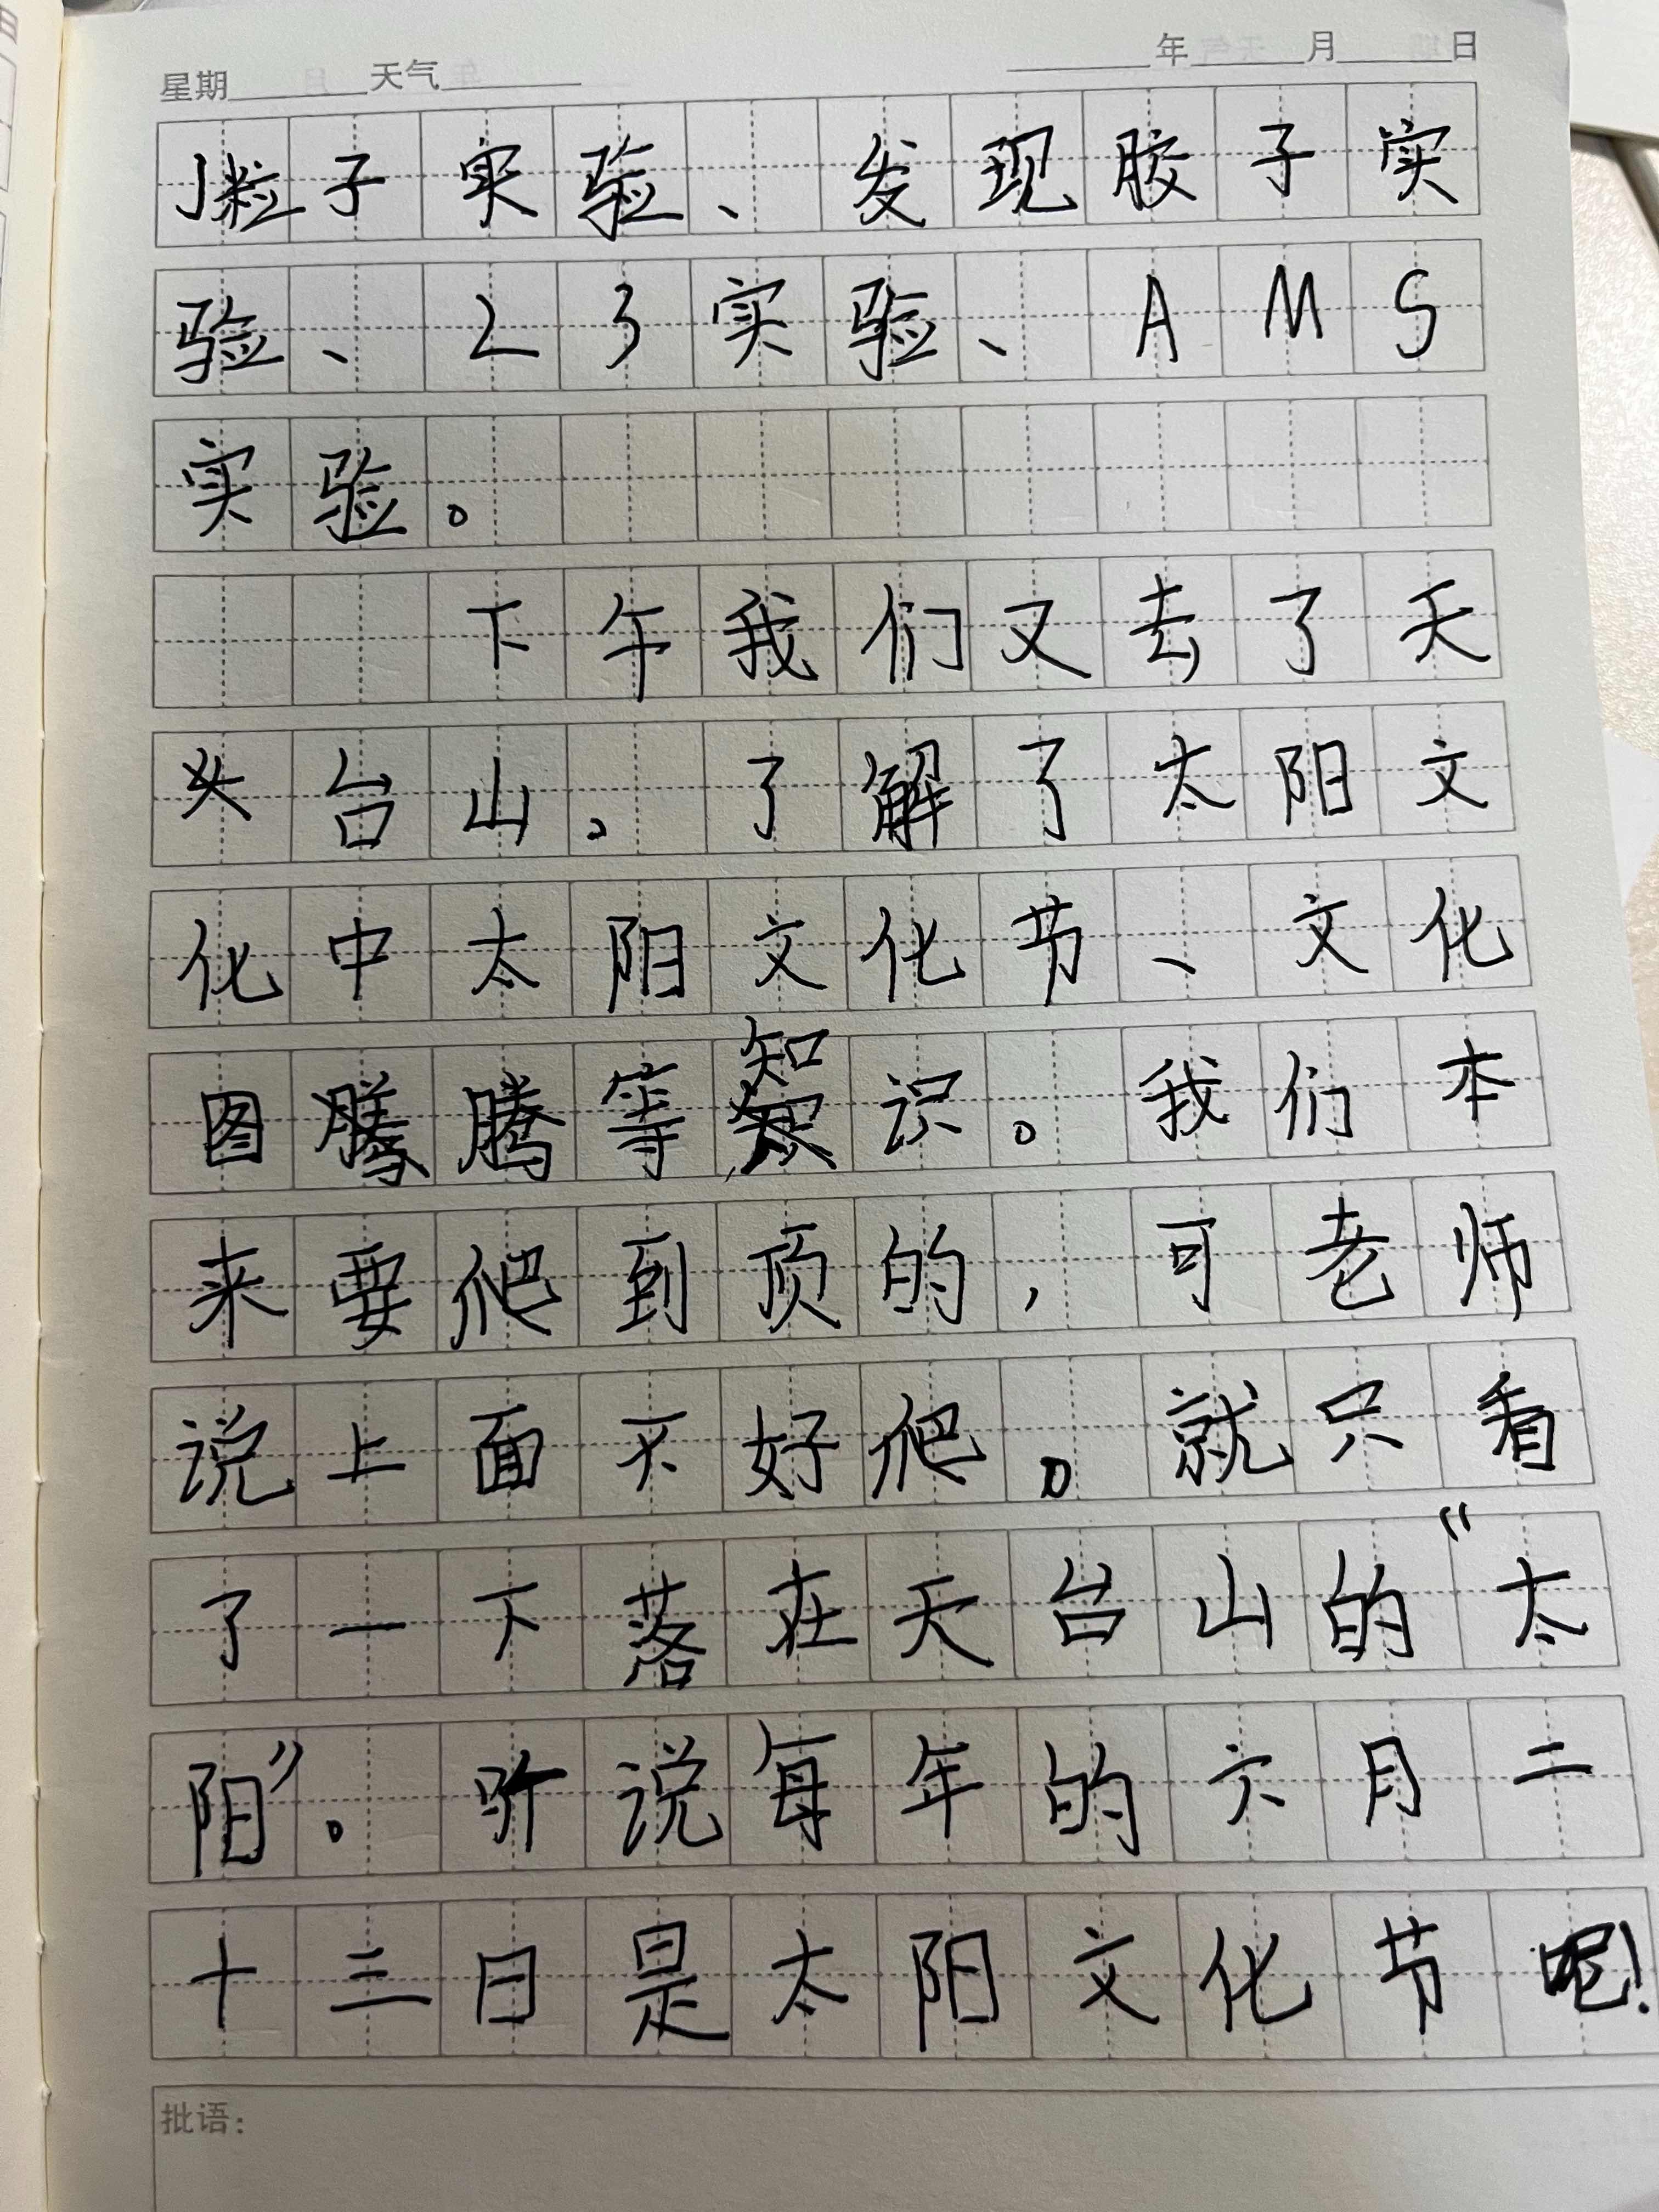 星期 天气 年 月 日
J粒子实验、发现胶子实
验、L3实验、AMS
实验。
下午我们又去了天
头台山。了解了太阳文
化中太阳文化节、文化
图腾等知识。我们本
来要爬到顶的,可老师
说上面不好爬。就只看
了一下落在天台山的“太
阳”。听说每年的六月二
十三日是太阳文化节呢!
批语: